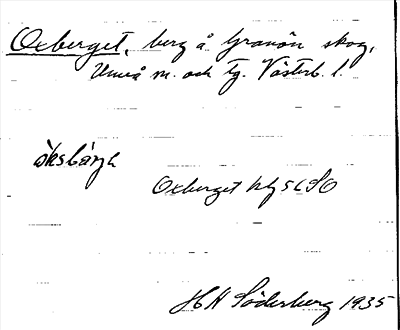 Oxberget, berg å Granön skog,
Umeå m. och tg. Västerb. l.
Oxberget hfg 56 SO
H H Söderberg 1935